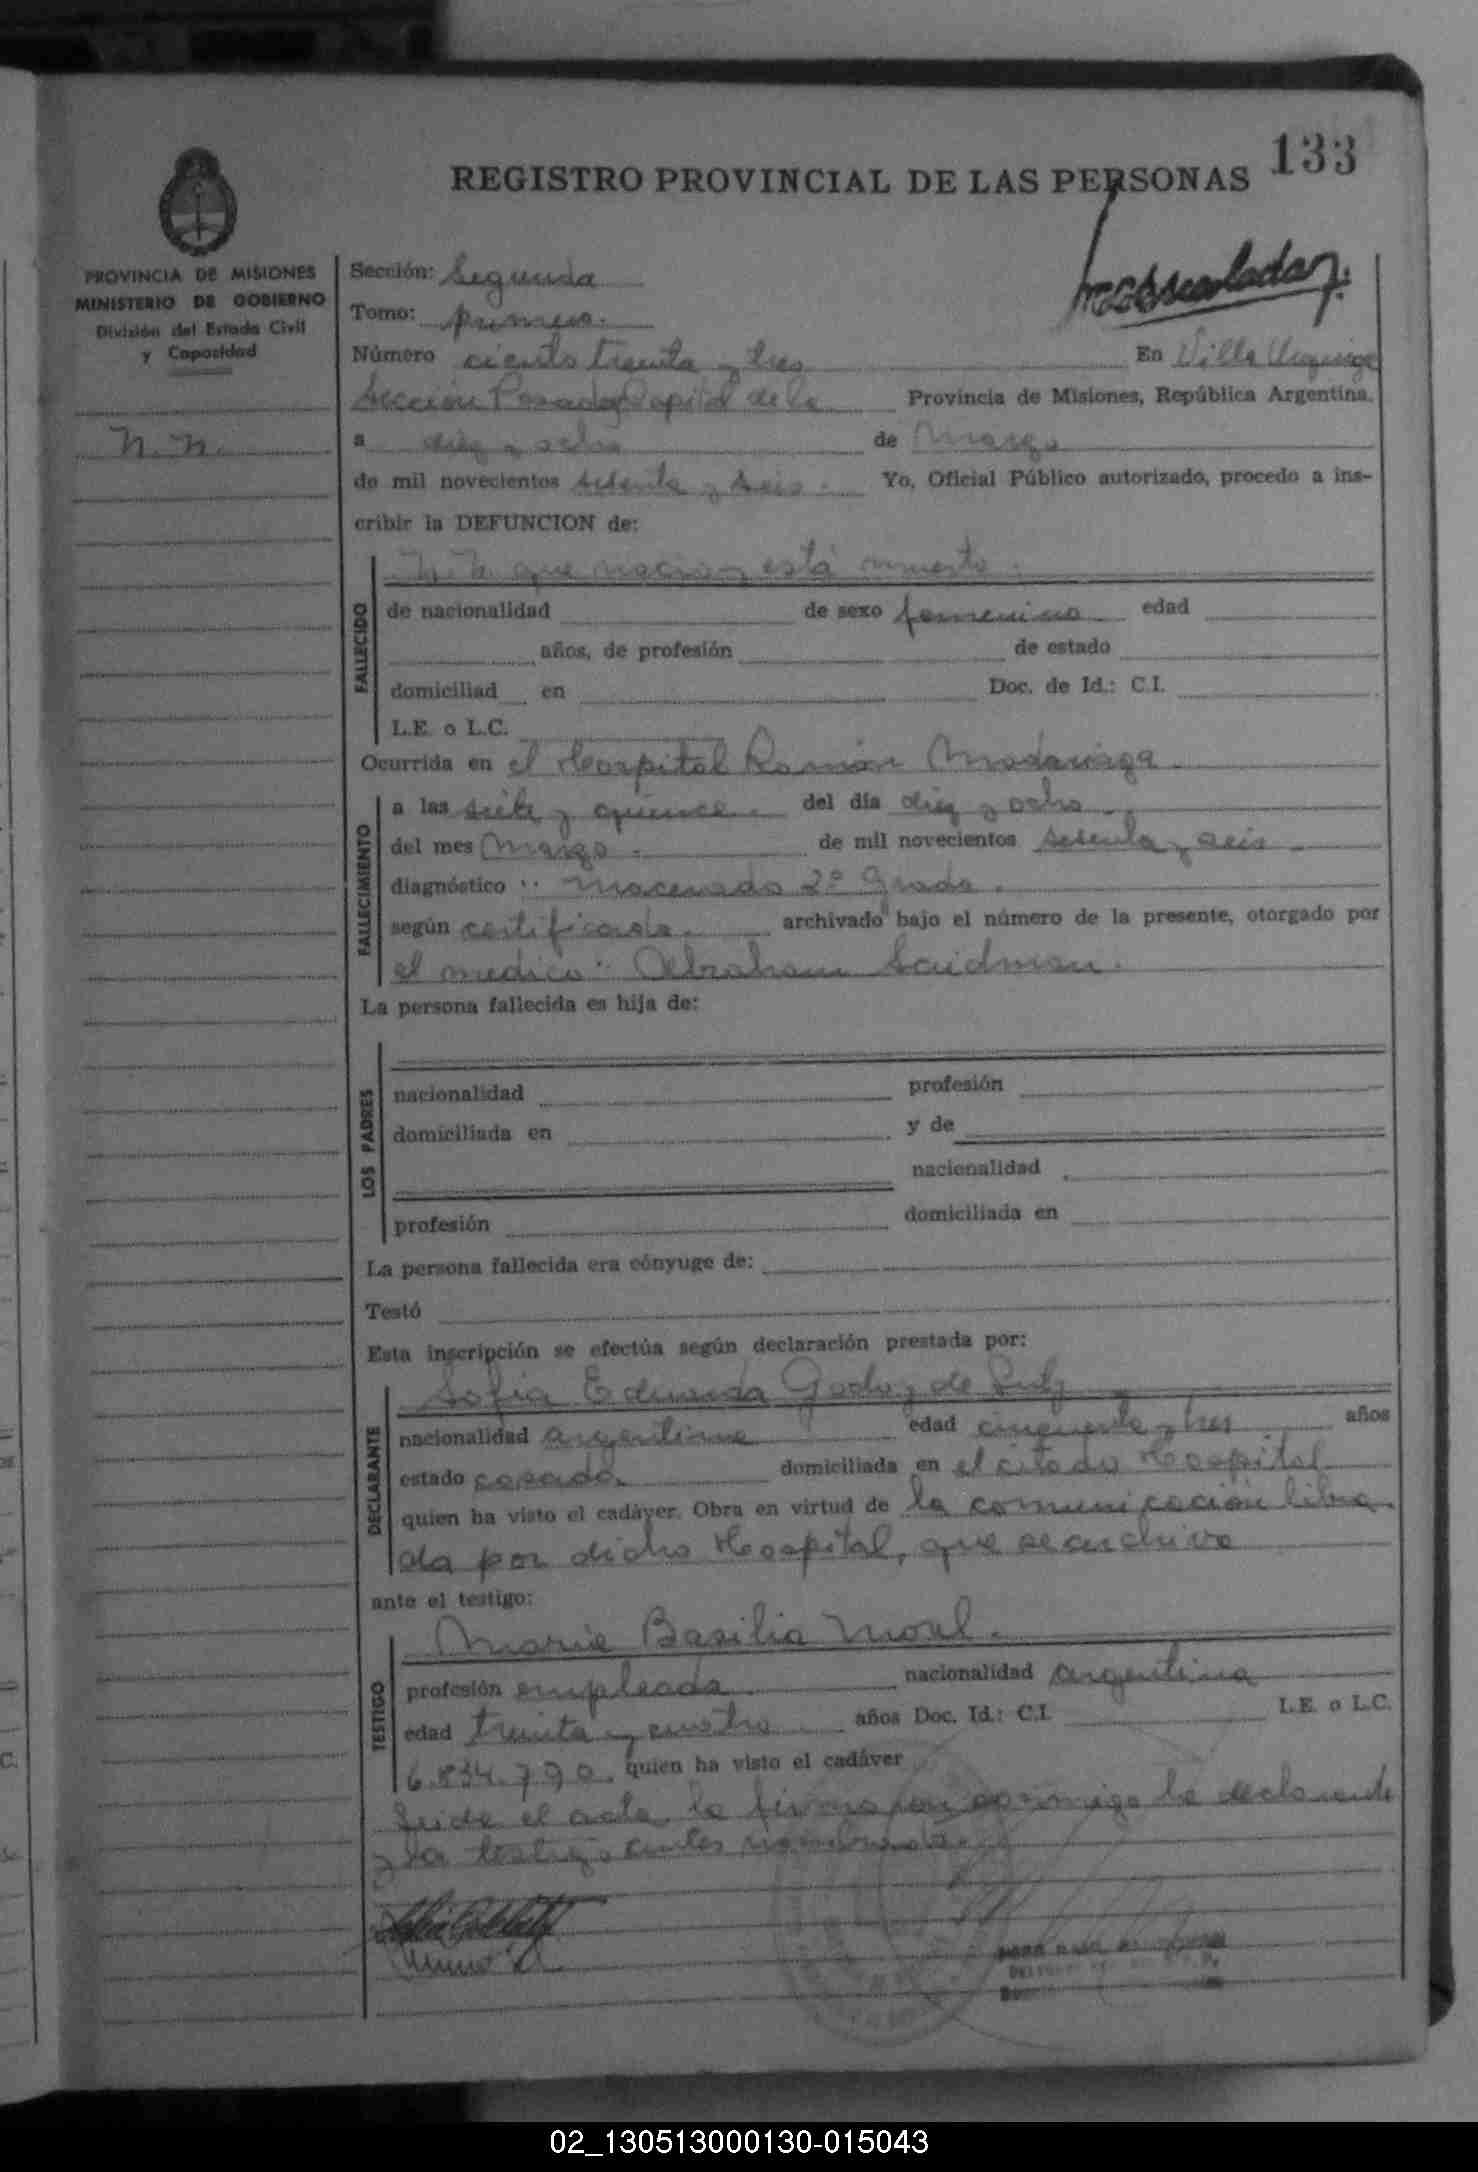 133
REGISTRO PROVINCIAL DE LAS PERSONAS
PROVINCIA DE MISIONES
MINISTERIO DE GOBIERNO
División del Estado Civil
y Capacidad
N. N.
Sección: Segunda
Tomo: primero.
Número ciento treinta y tres En Villa Urquiza
Sección Posadas Capital de la Provincia de Misiones, República Argentina,
a diez y ocho de Marzo
de mil novecientos setenta y seis. Yo, Oficial Público autorizado, procedo a ins-
cribir la DEFUNCION de:
N. N. que nacio y está muerto.
FALLECIDO
de nacionalidad de sexo femenino edad
años, de profesión de estado
domiciliad en Doc. de Id.: C.I.
L.E. o L.C.
Ocurrida en el Hospital Ramón Madariaga.
FALLECIMIENTO
a las siete y quince. del día diez y ocho
del mes Marzo. de mil novecientos setenta y seis.
diagnóstico: macerado 2º Grado.
según certificado. archivado bajo el número de la presente, otorgado por
el medico: Abraham Saidman.
La persona fallecida es hija de:
LOS PADRES
nacionalidad profesión
domiciliada en y de
nacionalidad
profesión domiciliada en
La persona fallecida era cónyuge de:
Testó
Esta inscripción se efectúa según declaración prestada por:
Sofia Eduarda Godoy de
DECLARANTE
nacionalidad argentina edad cincuenta y tres años
estado casada. domiciliada en el citado Hospital
quien ha visto el cadáver. Obra en virtud de la comunicación libra-
da por dicho Hospital, que se archiva
ante el testigo:
Maria Basilia
TESTIGO
profesión empleada nacionalidad argentina
edad treinta y cuatro años Doc. Id.: C.I. L.E. o L.C.
6.834.790. quien ha visto el cadáver
Leida el acta, la firman conmigo la declarante
y la testigo antes nombrada.
02_130513000130-015043